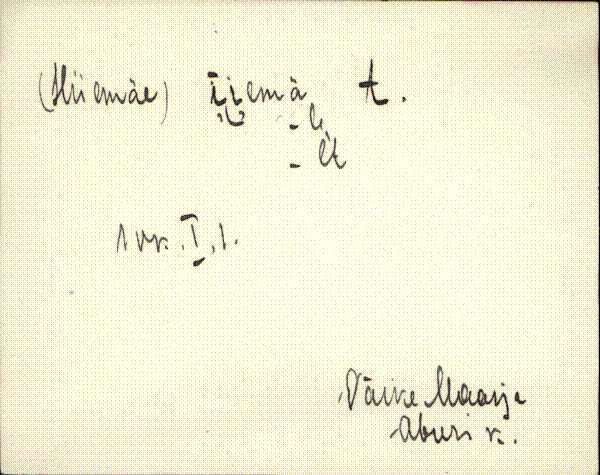 (Hiiemäe) iiemä, t.
-le
-lt
1 vk. I, 1.
Väike Maarja
Aburi k.